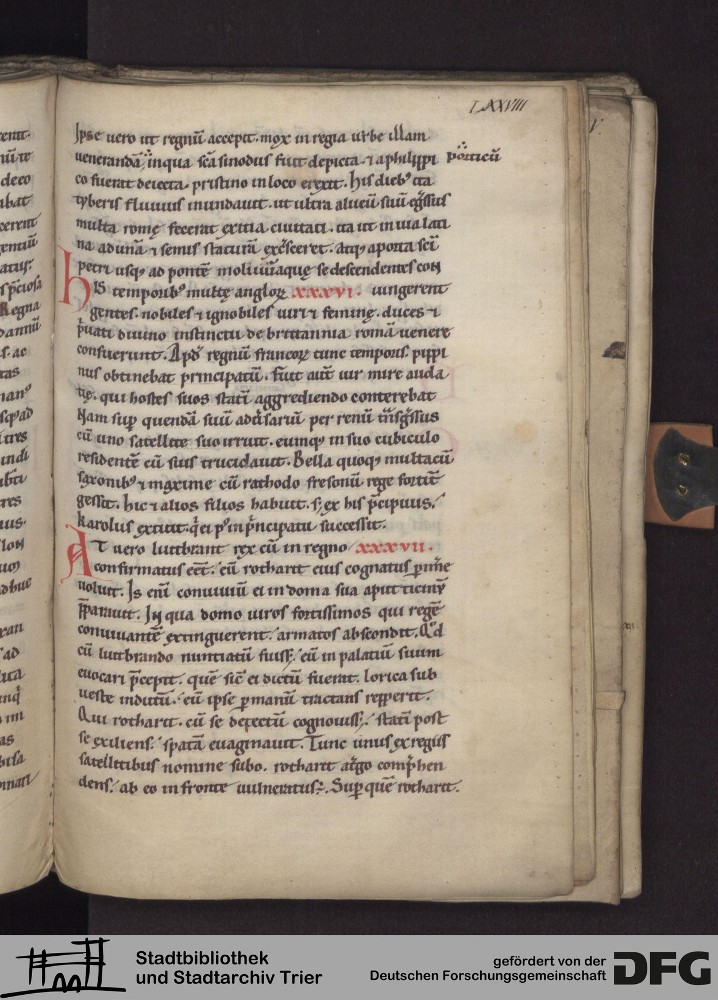 LXXVIII
Ipse uero ut regnū accepit. mox in regia urbe illam
uenerandā inqua scā sinodus fuit depicta. ⁊ aphilippi porticū
co fuerat deiecta. pristino in loco erexit. His dieb; ita
tyberis fluuius inundauit. ut ultra alueū suū egssus
multa romę fecerat exitia ciuitati. ita ut in uia lati
na ad unā ⁊ semis staturā excsceret. atq; aporta sci
petri usq; ad pontē moliuiū aquę se descendentes con
His temporib; multę anglorꝝ xxxvi. iungerent
gentes. nobiles ⁊ ignobiles uiri ⁊ feminę. duces ⁊
p̄uati diuino instinctu de brittannia romā uenire
consuerunt. Apd regnū francorꝝ tunc temporis. pippi
nus obtinebat principatū. fuit aūt uir mire auda
tię. qui hostes suos statī aggrediendo conterebat
Nam sup quendā suū aduersariū per renū tnsgssus
cū uno satellite suo irruit. eumq; in suo cubiculo
residentē cū suis trucidauit. Bella quoq; multa cū
saxonib; ⁊ maxime cū rathodo fresonū rege fortit̄
gessit. hic ⁊ alios filios habuit. s; ex his p̄cipuus.
karolus extitit. q̄ ei p̄ in p̄ncipatu successit.
At uero luitbrant rex cū in regno xxxvii.
confirmatus eēt. eū rotharit eius cognatus pimē
uoluit. Is enī conuiuiū ei in doma sua aput ticinū
p̄parauit. In qua domo uiros fortissimos qui regē
conuiuantē extinguerent. armatos abscondit. Qd
cū luitbrando nuntiatū fuiss; eū in palatiū suum
euocari p̄cepit. quē sic̄ ei dictū fuerat. lorica sub
ueste indutū. eū ipse p manū tractans repperit.
Qui rotharit. cū se detectū cognouiss; statī post
se exiliens. spatā euaginauit. Tunc unus ex regiis
satellitibus nomine subo. rotharit atgo comp̄hen
dens. ab eo in fronte uulneratus ÷. Sup quē rotharit.
Stadtbibliothek
und Stadtarchiv Trier
gefördert von der
Deutschen Forschungsgemeinschaft
DFG